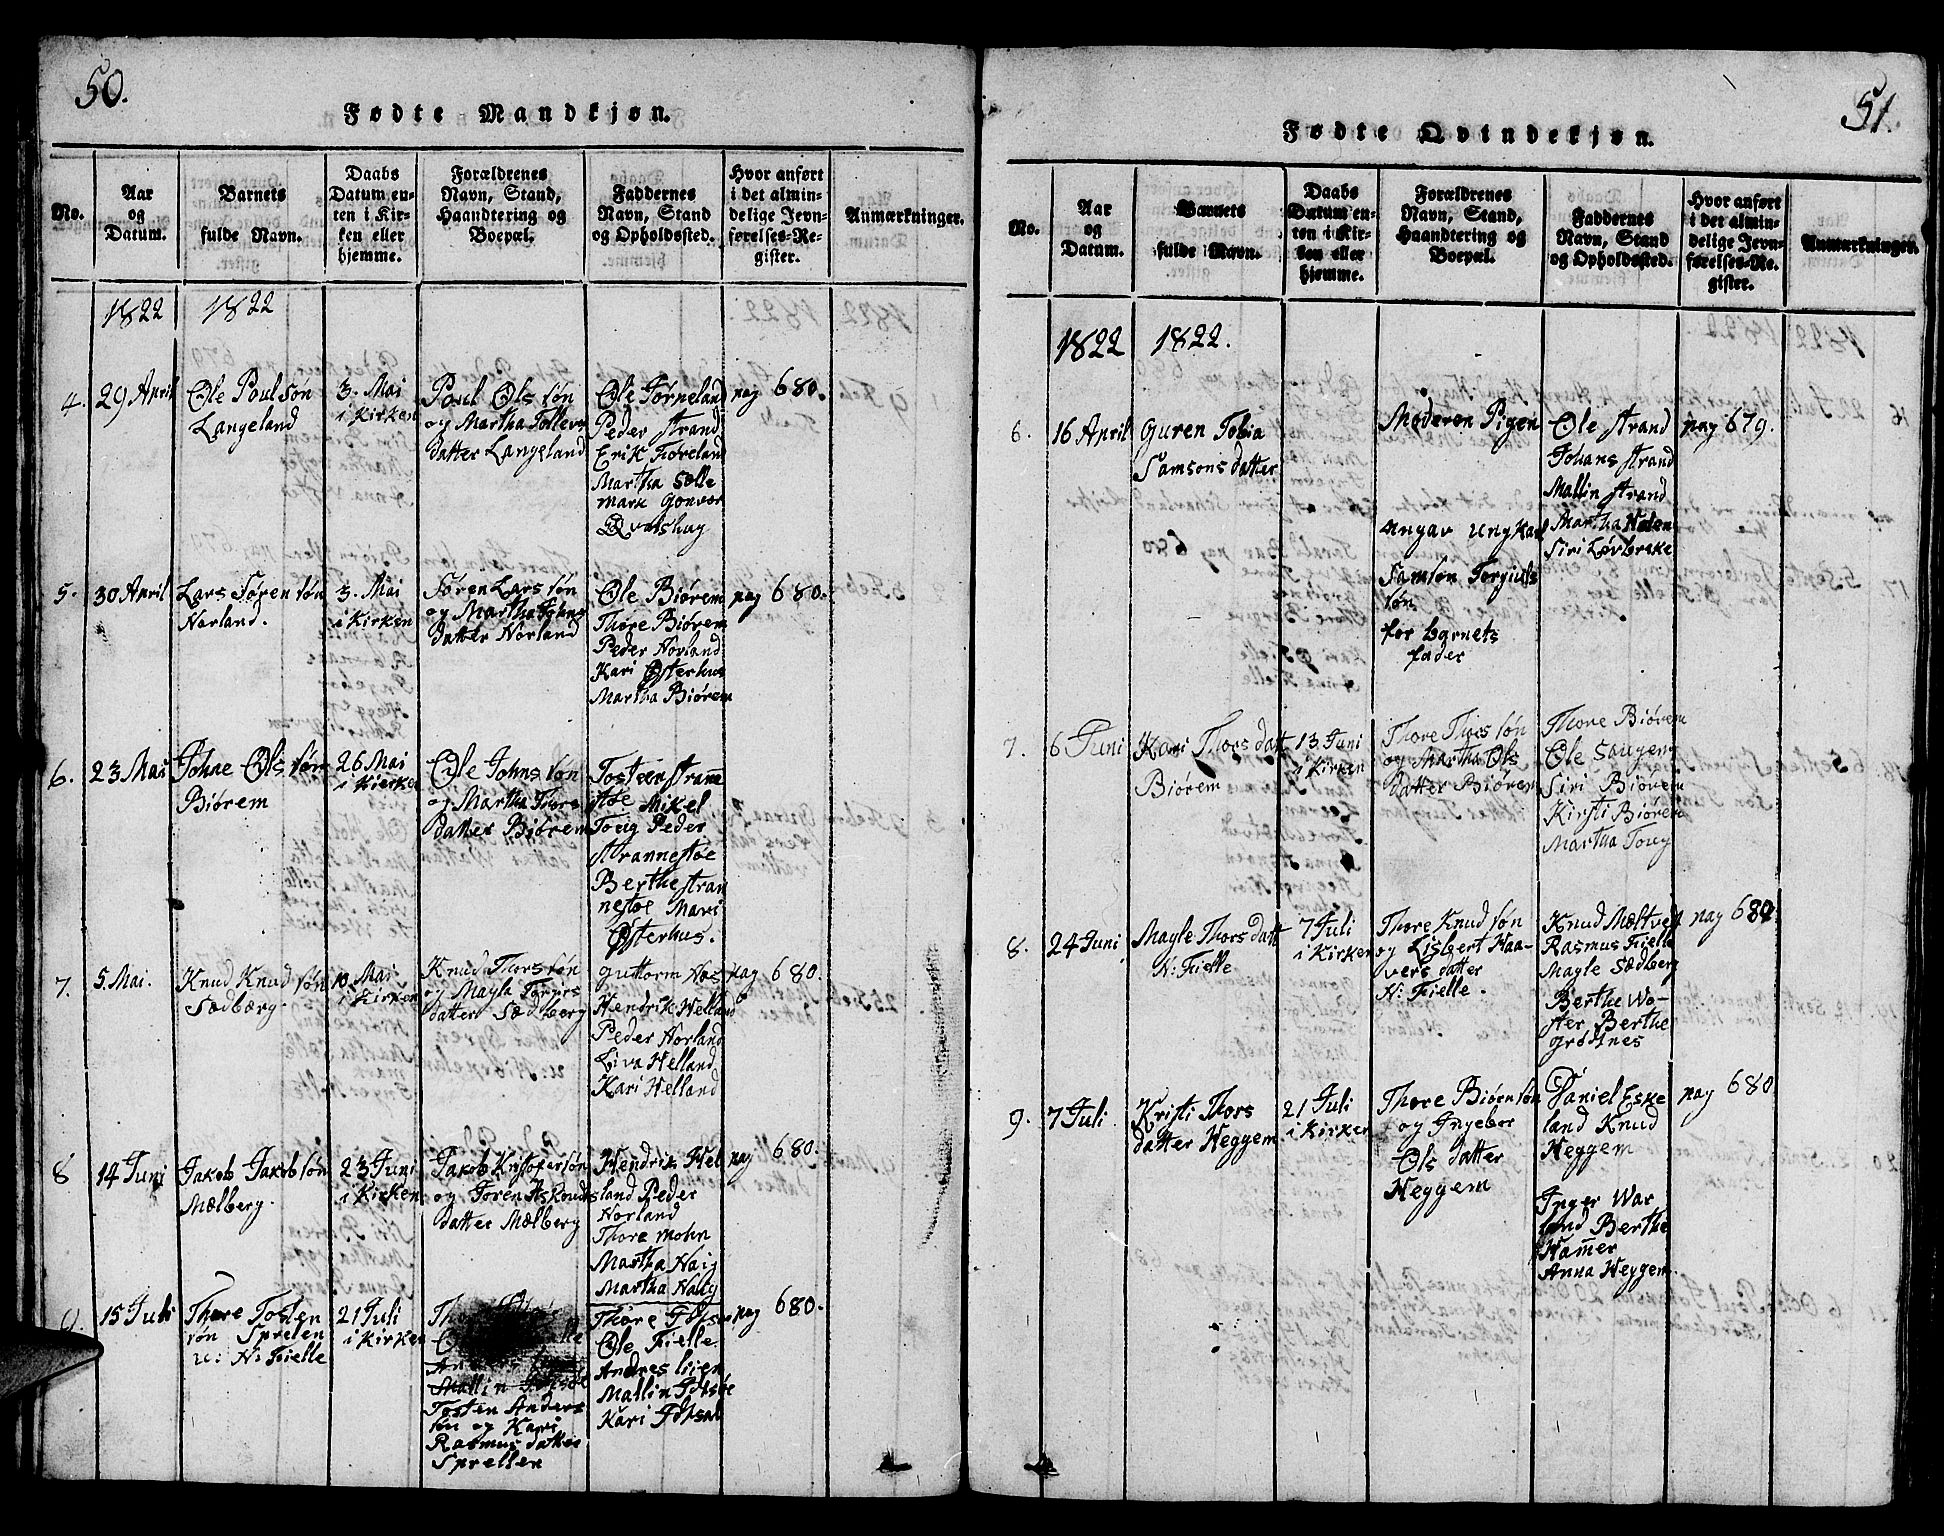 50.
Fødte Mandkjøn.
No.
Aar
og
Datum.
Barnets
fulde Navn.
Daabs
Datum en-
ten i Kir-
ken eller
hjemme.
Forældrenes
Navn, Stand,
Haandtering og
Boepæl.
Faddernes
Navn, Stand
og Opholdssted.
Hvor anført
i det almin-
delige Jevn-
førelses-Re-
gister.
Anmærkninger.
1822
1822
4.
29 April
Ole Poulsøn
Langeland
3. Mai
i Kirken
Poul Ols søn
og Martha Tollevs
datter Langeland
Ole Tørneland
Peder Strand
Erik Tioreland
Martha Sølle
mark Gonvor
Qvalshug
pag 680.
5.
30 April
Lars Sørensøn
Norland.
3. Mai
i Kirken
Søren Lars søn
og Martha Johns
datter Norland
Ole Biørem
Thore Biørem
Peder Norland
Kari Østerhus
Martha Biørem
pag 680.
6.
23 Mai
Johne Ols søn
Biørem
26 Mai
i Kierken
Ole Johns søn
og Martha Thors
datter Biørem
Tosteen Stranne
støe Mikel
Toug Peder
Strannestøe
Berthe Stran
nestøe Mari
Østerhus.
7.
5. Mai.
Knud Knudsøn
Sædberg.
10 Mai
i Kirken
Knud Thors søn
og Mayla Torgrs
datter Sædberg
Guttorm Nos
Hendrik Helland
Peder Norland
Liva Helland
Kari Helland
pag 680.
8
14 Juni
Jakob Jakobsøn
Mælberg.
23 Juni
i Kirken
Jakob Kristofersøn
og Toren Askouds
datter Mælberg
Hendrik Hel
land Peder
Norland
Thore mohn
Martha Haig
Martha Haug
pag 680.
9.
15 Juli
Thore Tosten
søn Sprelen
u: N: Fielle
21 Juli
i Kirken
Mallin
Tosten Anders
søn og Kari
Rasmus datter
Sprellen
Thore Idsøe
Ole Fielle
Andres lien
Mallin Idsøe
Kari Idsøe
pag 680.
51.
Fødte Qvindekjøn.
No.
Aar
og
Datum.
Barnets
fulde Navn.
Daabs
Datum en-
ten i Kir-
ken eller
hjemme.
Forældrenes
Navn, Stand,
Haandtering og
Boepæl.
Faddernes
Navn, Stand
og Opholdssted.
Hvor anført
i det almin-
delige Jevn-
førelses-Re-
gister.
Anmærkninger.
1822
1822.
6.
16 April
Guren Tobia
Samsons datter
Moderen Pigen
angav Ungkarl
Samson Torgiuls
søn
for barnets
fader
Ole Strand
Johans Strand
Mallin Strand
Martha Holen
Siri Løvbrekke
pag 679.
7.
6 Juni
Kari Thors datt
Biørem
13 Juni
i Kirken
Thore Thors søn
og Martha Ols
datter Biørem
Thore Biørem
Ole Saugen
Siri Biørem
Kirsti Biørem
Martha Toug
8.
24 Juni
Mayle Thors datt
N: Fielle
7 Juli
i Kirken
Thore Knudsøn
og Lisbert Haa-
vers datter
N: Fielle.
Knud Mæltveit
Rasmus Fielle
Mayle Sædberg
Berthe Wo-
ster Berthe
Grødtnes
pag 680.
9.
7 Juli
Kristi Thors
datter Heggem
21 Juli
i Kirken
Thore Biørnsøn
og Ingebor
Ols datter
Heggem
Daniel Eske
land Knud
Heggem
Inger War
land Berthe
Hamer
Anna Heggem.
pag 680